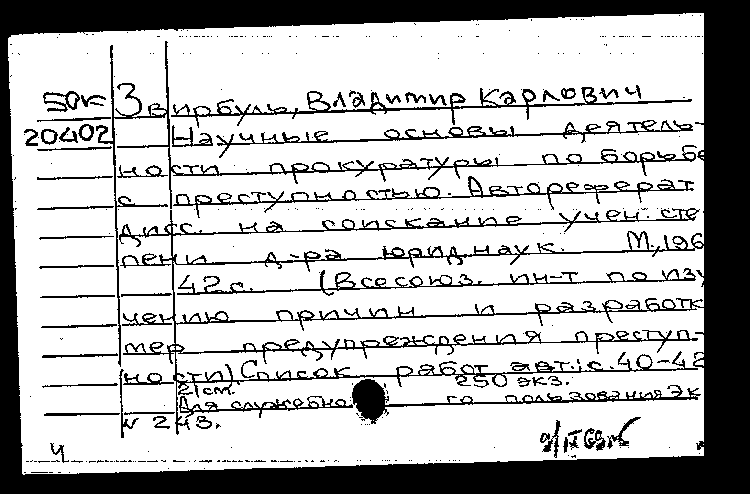 50к Звирбуль, Владимир Карлович
20402 Научные основы деятель-
ности прокуратуры по борьбе
с преступностью. Автореферат
дисс. на соискание учен. сте-
пени д-ра юрид. наук. М., 196
42 с. (Всесоюз. ин-т по изу
чению причин и разработк
мер предупреждения преступ-
ности). Список работ авт.: с. 40-42
21 см. 250 экз.
Для служебно го пользования Эк
N 243.
4